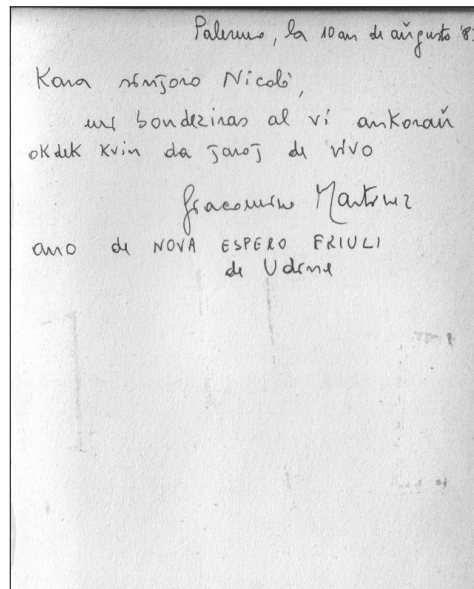 Palermo, la 10an de aŭgusto '83
Kara sinjoro Nicolò,
mi bondeziras al vi ankoraŭ
okdek kvin da jaroj de vivo
Giacomino Martinez
ano de NOVA ESPERO FRIULI
de Udine